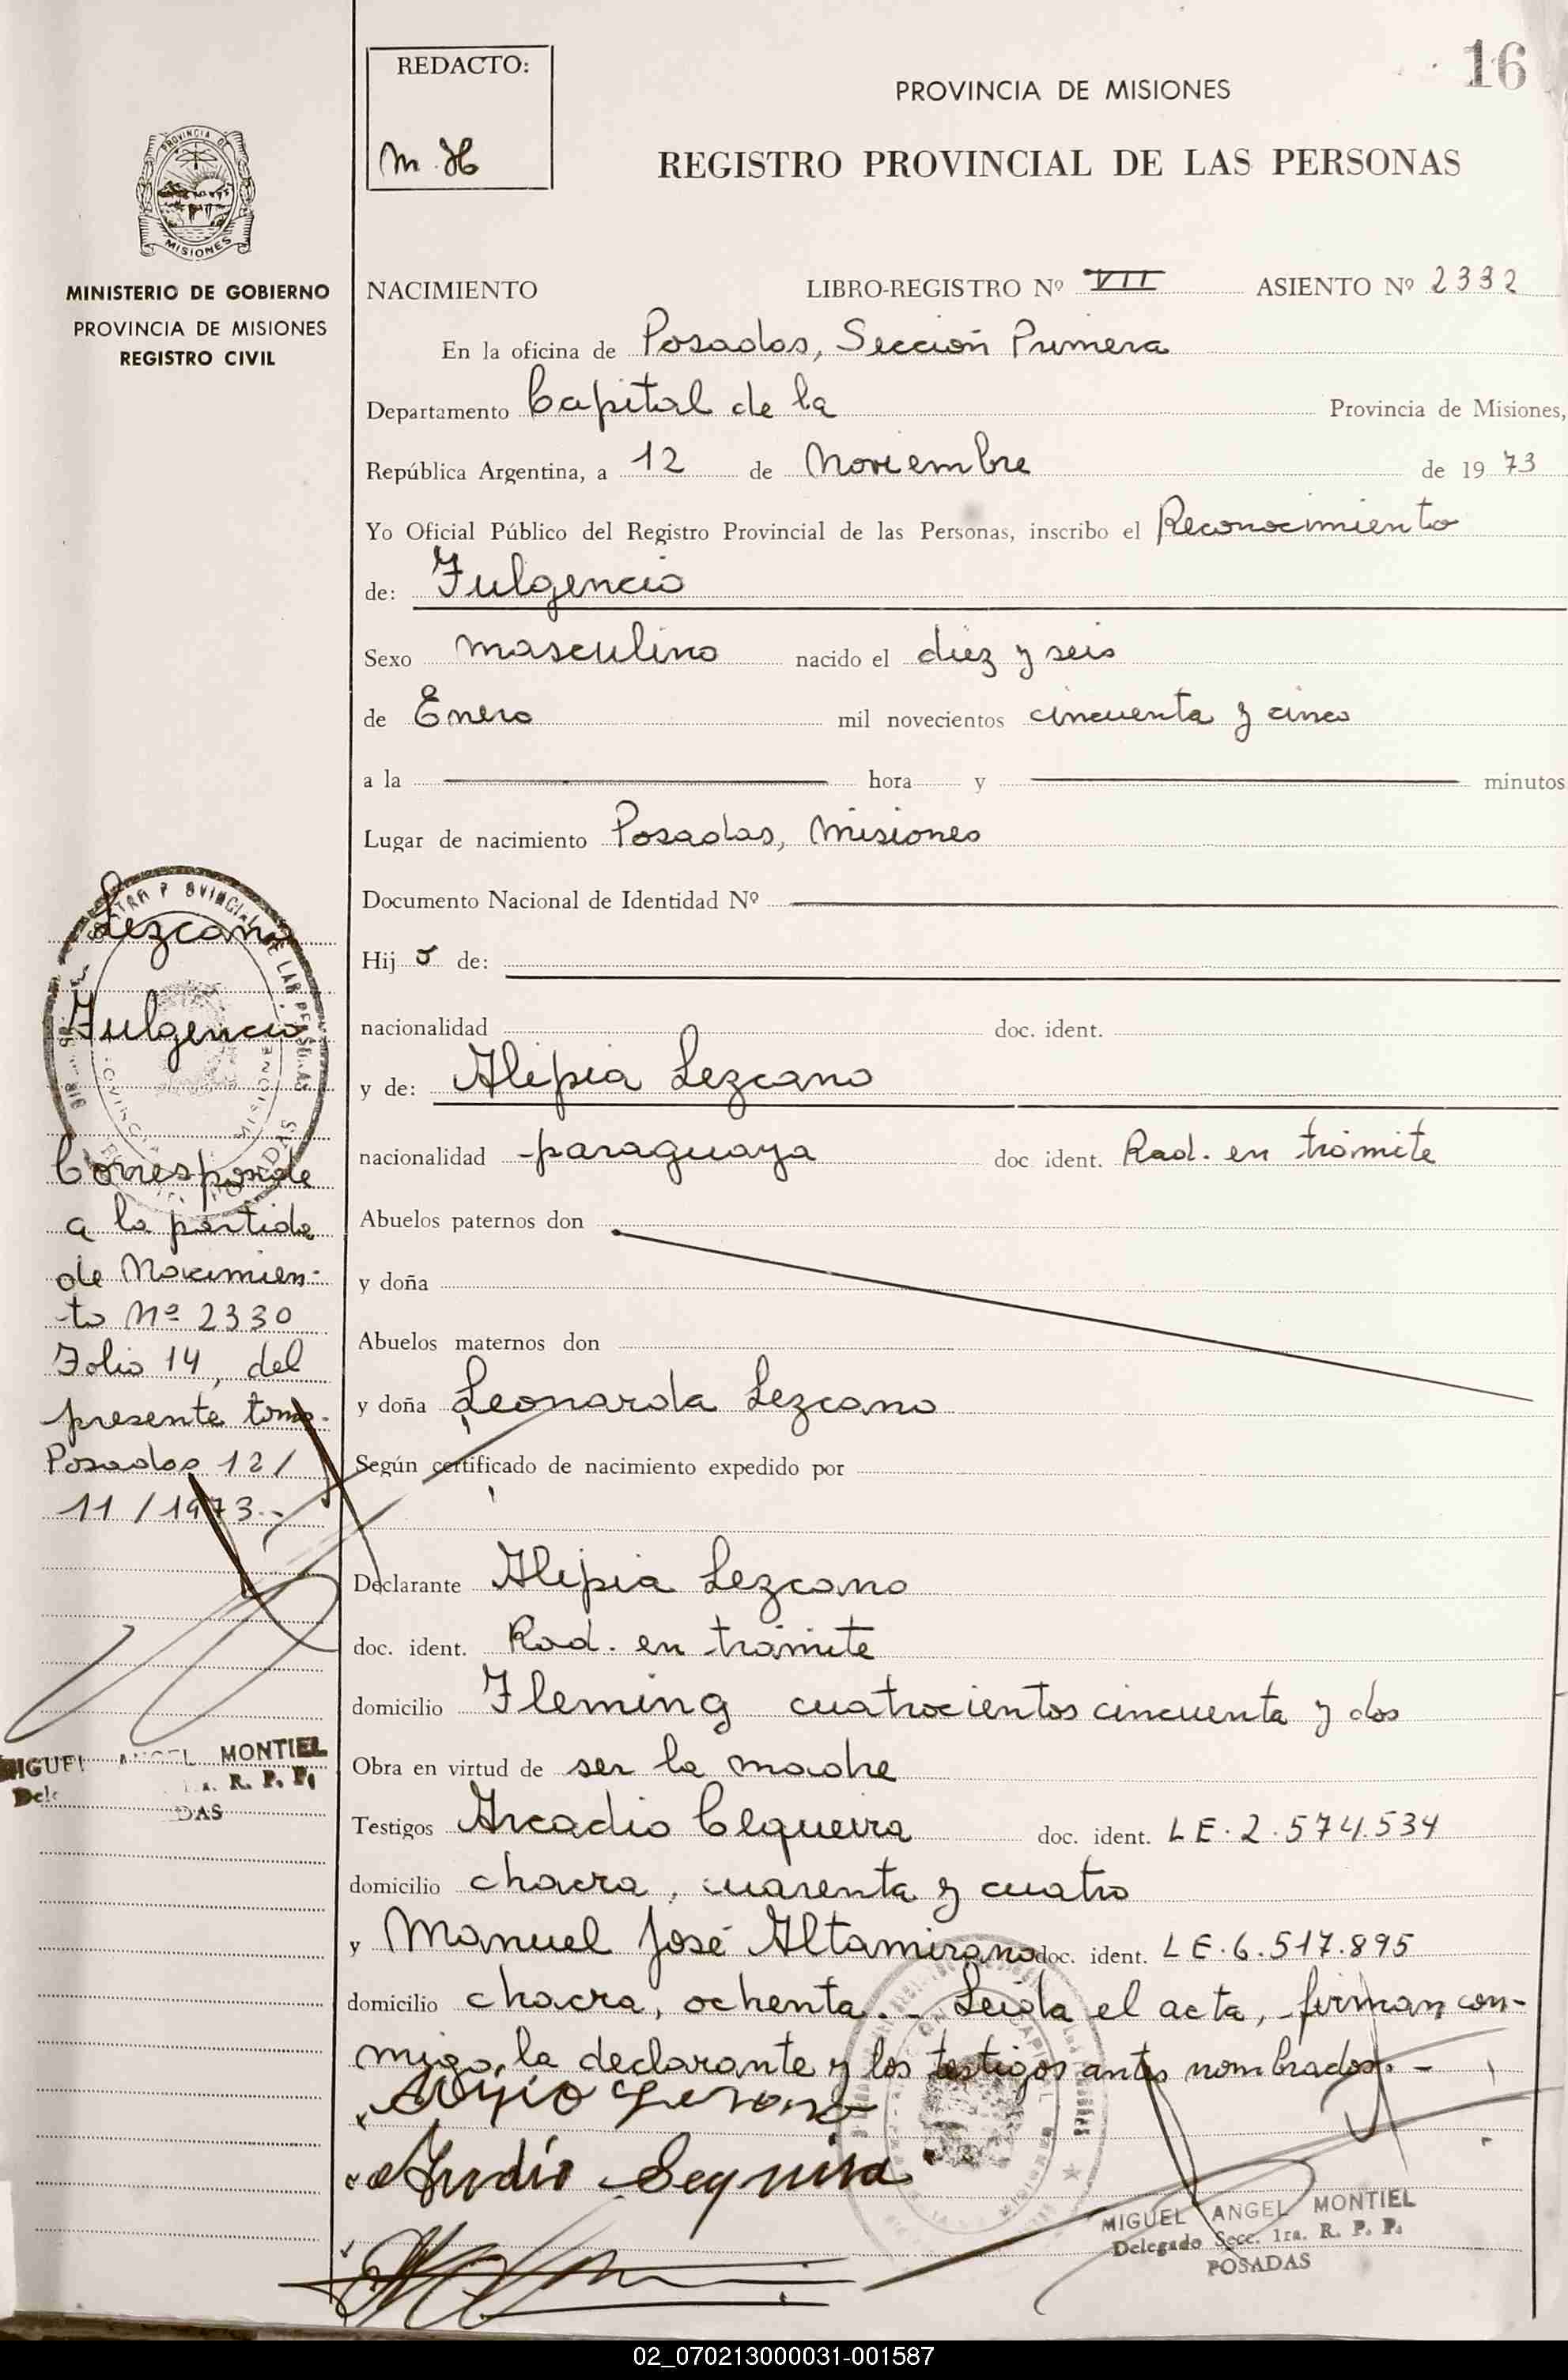 16
REDACTO:
M. H
PROVINCIA DE MISIONES
REGISTRO PROVINCIAL DE LAS PERSONAS
PROVINCIA D
MISIONES
MINISTERIO DE GOBIERNO
PROVINCIA DE MISIONES
REGISTRO CIVIL
NACIMIENTO LIBRO-REGISTRO Nº VII ASIENTO Nº 2332
En la oficina de Posadas, Sección Primera
Departamento Capital de la Provincia de Misiones,
República Argentina, a 12 de Noviembre de 1973
Yo Oficial Público del Registro Provincial de las Personas, inscribo el Reconocimiento
de: Fulgencio
Sexo masculino nacido el diez y seis
de Enero mil novecientos cincuenta y cinco
a la hora y minutos
Lugar de nacimiento Posadas, Misiones
Documento Nacional de Identidad Nº
Hijo de:
nacionalidad doc. ident.
y de: Alipia Lezcano
nacionalidad paraguaya doc ident. Rad. en trámite
Abuelos paternos don
y doña
Abuelos maternos don
y doña Leonarda Lezcano
Según certificado de nacimiento expedido por
Declarante Alipia Lezcano
doc. ident. Rad. en trámite
domicilio Fleming cuatrocientos cincuenta y dos
Obra en virtud de ser la madre
Testigos Arcadio Cequeira doc. ident. LE. 2.574.534
domicilio chacra, cuarenta y cuatro
y Manuel José Altamirano doc. ident. LE. 6.517.895
domicilio chacra, ochenta.- Leída el acta, firman con-
migo, la declarante y los testigos antes nombrados.-
MIGUEL ANGEL MONTIEL
Delegado Secc. 1ra. R. P. P.
POSADAS
Lezcano
Fulgencio
Corresponde
a la partida
de Nacimien-
to Nº 2330
Folio 14, del
presente tomo.
Posadas 12/
11/1973.-
MIGUEL ANGEL MONTIEL
R. P. P.
DAS
02_070213000031-001587